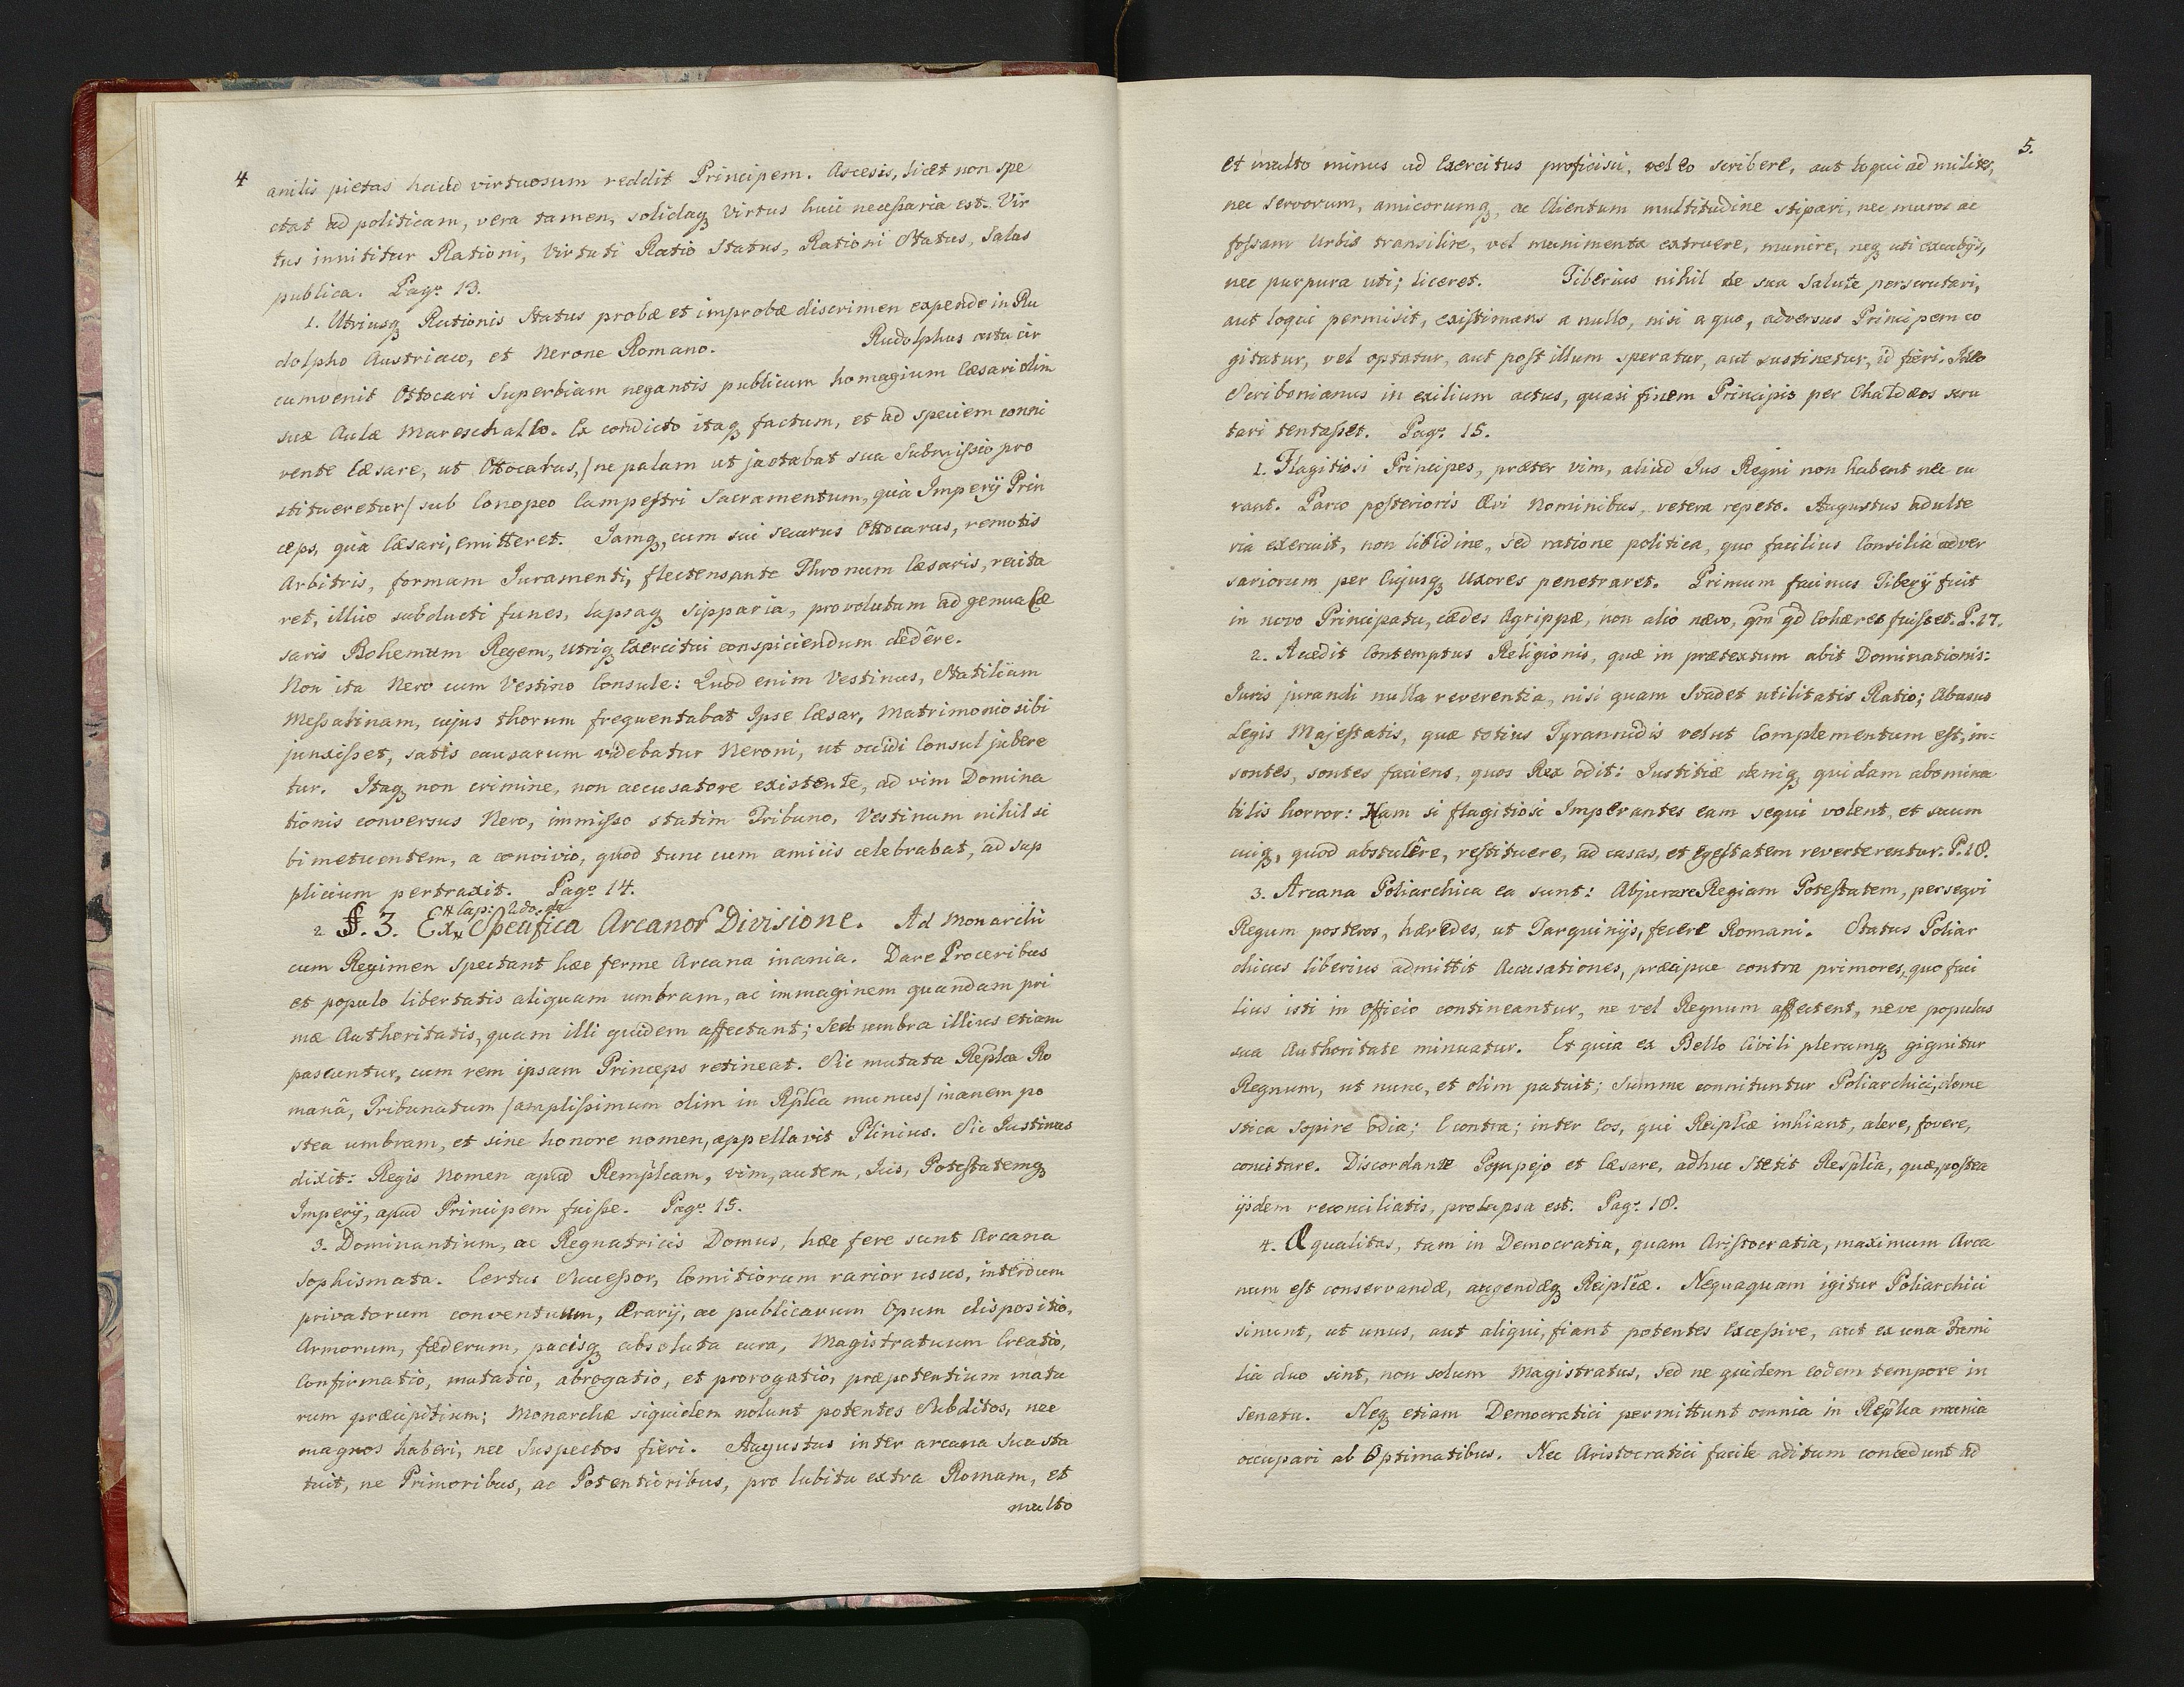 4
anilis pietas haud virtuosum reddit Principem. Ascesis, licet non spe
ctat ad politicam, vera tamen, solidaq₃ Virtus huic necessaria est. Vir
tus innititur Rationi, Virtuti Ratio Status, Rationi Status, Salus
publica. Pagᵃ 13.
1. Utriusq₃ Rationis Status probæ et improbæ discrimen expende in Ru
dolpho Austriaco, et Nerone Romano. Rudolphus astu cir
cumvenit Ottocari Superbiam negantis publicum homagium Cæsari olim
suæ Aulæ Mareschallo. Ex condicto itaq₃ factum, et ad speciem conni
vente Cæsare, ut Ottocarus, /ne palam ut jactabat sua Submissio pro
stitueretur/ sub Conopeo Campestri Sacramentum, quà Imperij Prin
ceps, quà Cæsari, emitteret. Jamq₃, cum sui securus Ottocarus, remotis
Arbitris, formam Juramenti, flectens ante Thronum Cæsaris, recita
ret, illico subducti funes, lapsaq₃ sipparia, provolutum ad genua Cæ
saris Bohemum Regem, utriq₃ Exercitui conspiciendum dedêre.
Non ita Nero cum Vestino Consule: Quod enim Vestinus, Statiliam
Messalinam, cujus thorum frequentabat Ipse Cæsar, Matrimonio sibi
junxisset, satis causarum videbatur Neroni, ut occidi Consul jubere
tur. Itaq₃ non crimine, non accusatore existente, ad vim Domina
tionis conversus Nero, immisso statim Tribuno, Vestinum nihil si
bi metuentem, a convivio, quod tunc cum amicis celebrabat, ad sup
plicium pertraxit. Pagᵃ 14.
# Cap: 2do. de
2 §. 3. Ex # Specifica Arcanoꝝ Divisione. Ad Monarchi
cum Regimen spectant hæc ferme Arcana inania. Dare Proceribus
et populo libertatis aliquam umbram, ac immaginem quandam pri
mæ Authoritatis, quam illi quidem affectant; Sed umbra illius etiam
pascuntur, cum rem ipsam Princeps retineat. Sic mutata Replca Ro
manâ, Tribunatum /amplissimum olim in Rplca munus/ inanem po
stea umbram, et sine honore nomen, appellavit Plinius. Sic Justinus
dixit: Regis Nomen apud Remplcam, vim, autem, Jus, Potestatemq₃
Imperij, apud Principem fuisse. Pagᵃ 15.
3. Dominantium, ac Regnatricis Domus, hæc fere sunt Arcana
Sophismata. Certus Successor, Comitiorum rarior usus, interdum
privatorum conventuum, Ærarij, ac publicarum Opum dispositio,
Armorum, fæderum, pacisq₃ absoluta cura, Magistratuum Creatio,
Confirmatio, mutatio, abrogatio, et prorogatio, præpotentium matu
rum præcipitium; Monarchæ siquidem nolunt potentes Subditos, nec
magnos haberi, nec Suspectos fieri. Augustus inter arcana sua sta
tuit, ne Primoribus, ac Potentioribus, pro lubitu extra Romam, et
multo
5.
et multo minus ad Exercitus proficisci, vel eo scribere, aut loqui ad milites,
nec servorum, amicorumq₃, ac Clientum multitudine stipari, nec muros ac
fossam Urbis transilire, vel munimenta extruere, munire, neq₃ uti excubijs,
nec purpura uti; liceret. Tiberius nihil de sua Salute perscrutari,
aut loqui permisit, existimans a nullo, nisi a quo, adversus Principem co
gitatur, vel optatur, aut post illum speratur, aut sustinetur, id fieri. Ideo
Scribonianus in exilium actus, quasi finem Principis per Chaldæos scru
tari tentasset. Pagᵃ 15.
1. Flagitiosi Principes, præter vim, aliud Jus Regni non habent nec cu
rant. Parco posterioris Ævi Nominibus, vetera repeto. Augustus adulte
ria exercuit, non libidine, sed ratione politica, quo facilius Consilia adver
sariorum per Cujusq₃ Uxores penetraret. Primum facinus Tiberij fuit
in novo Principatu, cædes Agrippæ, non alio nævo, qm̃ qd Cohæres fuisset. P. 17.
2. Accedit Contemptus Religionis, quæ in prætextum abit Dominationis:
Juris jurandi nulla reverentia, nisi quam Svadet utilitatis Ratio; Abusus
Legis Majestatis, quæ totius Tyrannidis velut Complementum est, in-
sontes, sontes faciens, quos Rex odit: Justitiæ deniq₃ quidam abomina
bilis horror: Nam si flagitiosi Imperantes eam sequi volent, et suum
cuiq₃, quod abstulêre, restituere, ad casas, et Egestatem reverterentur. P. 18.
3. Arcana Poliarchica ea sunt: Abjurare Regiam Potestatem, persequi
Regum posteros, hæredes, ut Tarquinijs, fecere Romani. Status Poliar
chicus liberius admittit Accusationes, præcipue contra primores, quo faci
lius isti in officio contineantur, ne vel Regnum affectent, neve populus
sua Authoritate minuatur. Et quia ex Bello Civili plerumq₃ gignitur
Regnum, ut nunc, et olim patuit; Summe connituntur Poliarchici, dome
stica sopire Odia; E contra; inter Eos, qui Reiplcæ inhiant, alere, fovere,
concitare. Discordante Pompejo et Cæsare, adhuc stetit Resplca, quæ, postea
ijsdem reconciliatis, prolapsa est. Pagᵃ 18.
4. Æqualitas, tam in Democratia, quam Aristocratia, maximum Arca
num est conservandæ, augendæq₃ Reiplcæ. Nequaquam igitur Poliarchici
sinunt, ut unus, aut aliqui, fiant potentes Excessive, aut ex una Fami
lia duo sint, non solum Magistratus, sed ne quidem eodem tempore in
Senatu. Neq₃ etiam Democratici permittunt omnia in Replca munia
occupari ab Optimatibus. Nec Aristocratici facile aditum concedunt ad